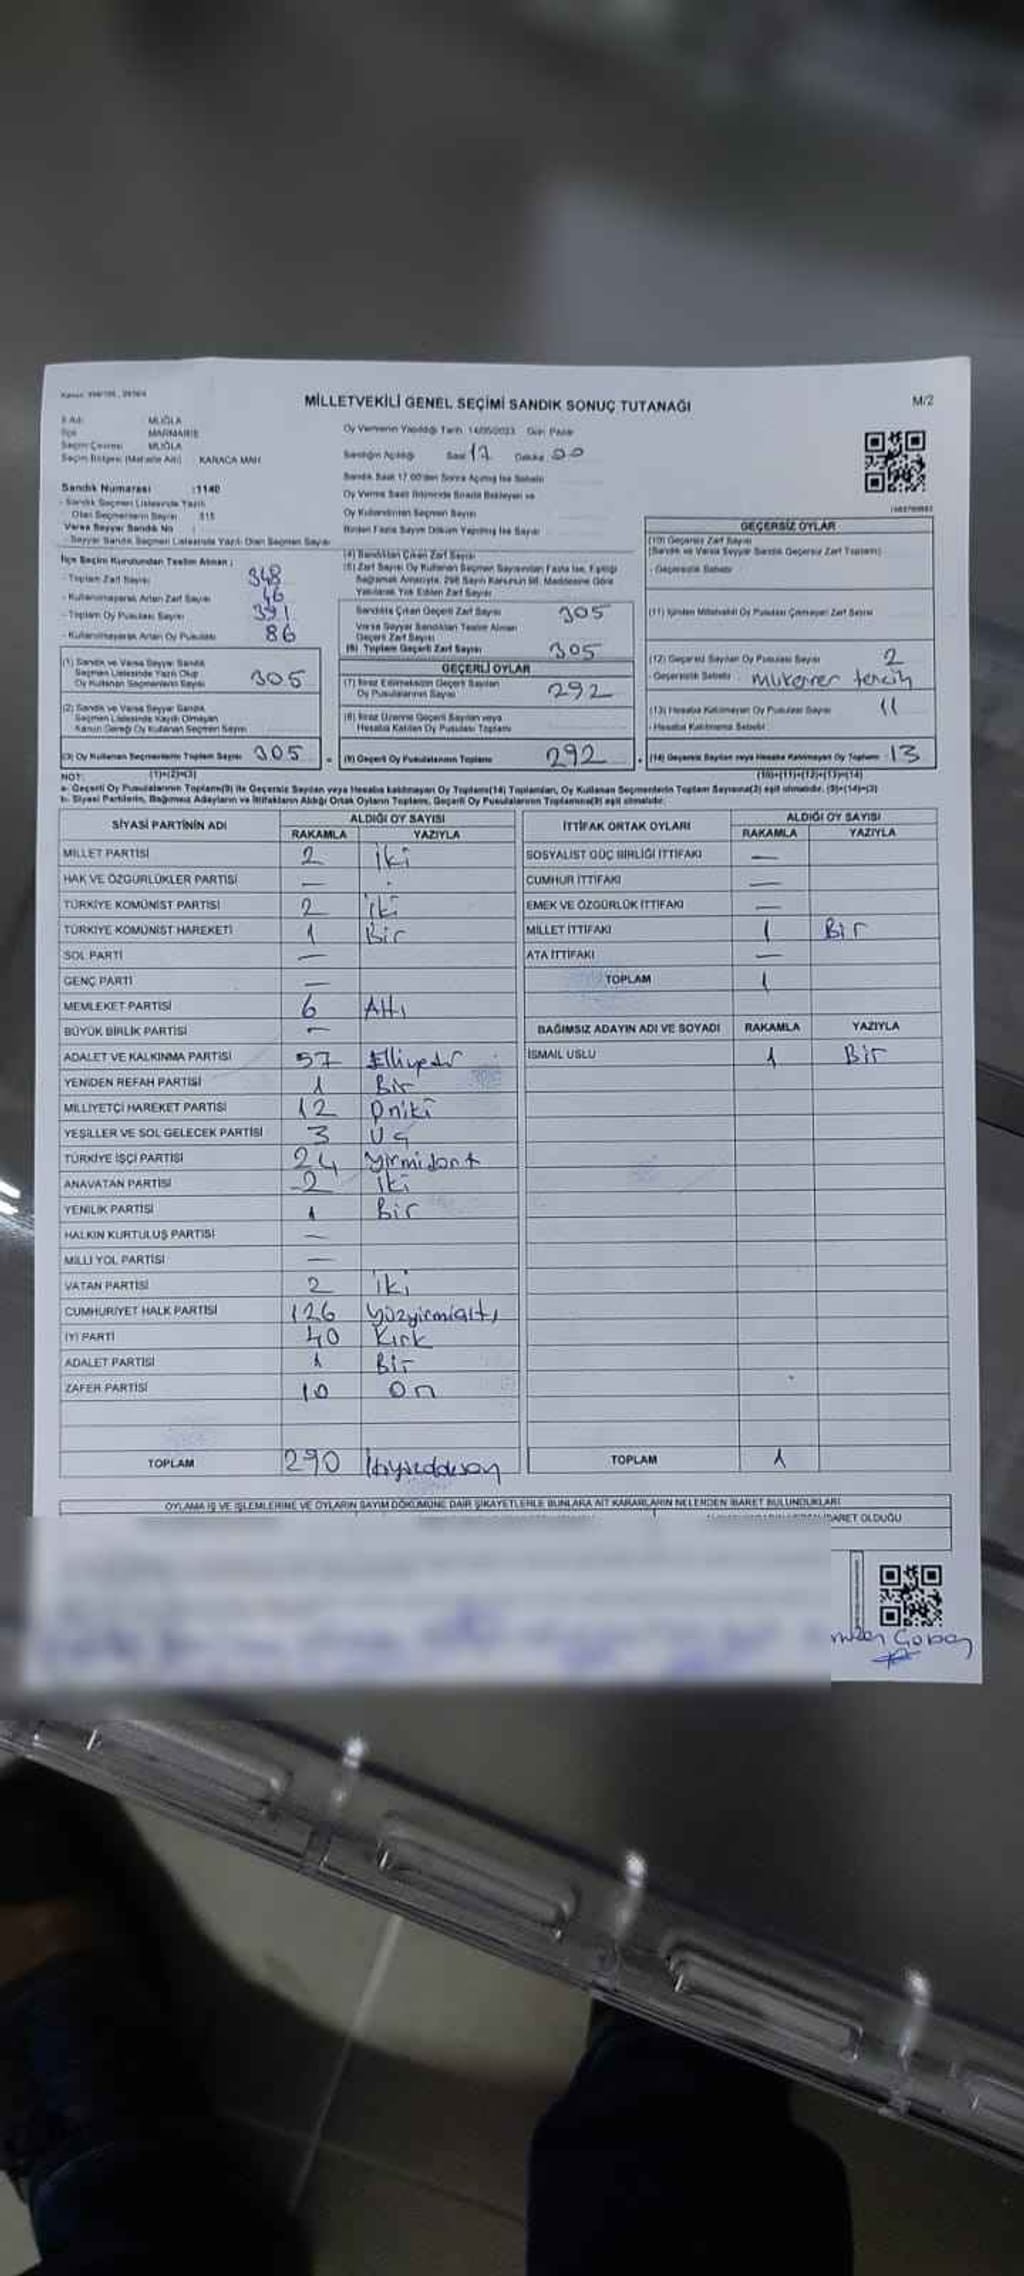 MİLLETVEKİLİ GENEL SEÇİMİ SANDIK SONUÇ TUTANAĞI
M/2
İl Adı: MUĞLA
İlçe MARMARİS
Seçim Çevresi MUĞLA
Seçim Bölgesi (Mahalle Adı) KARACA MAH.
Sandık Numarası :1140
Sandık Seçmen Listesinde Yazılı
Olan Seçmenlerin Sayısı 315
Varsa Seyyar Sandık No :
Seyyar Sandık Seçmen Listesinde Yazılı Olan Seçmen Sayısı
İlçe Seçim Kurulundan Teslim Alınan :
- Toplam Zarf Sayısı 348
- Kullanılmayarak Artan Zarf Sayısı 46
- Toplam Oy Pusulası Sayısı 391
- Kullanılmayarak Artan Oy Pusulası 86
(1) Sandık ve Varsa Seyyar Sandık
Seçmen Listesinde Yazılı Olup
Oy Kullanan Seçmenlerin Sayısı 305
(2) Sandık ve Varsa Seyyar Sandık
Seçmen Listesinde Kayıtlı Olmayan
Kanun Gereği Oy Kullanan Seçmen Sayısı
(3) Oy Kullanan Seçmenlerin Toplam Sayısı 305
(1)+(2)=(3)
Oy Vermenin Yapıldığı Tarih 14/05/2023 Gün Pazar
Sandığın Açıldığı Saat 17 Dakika 00
Sandık Saat 17.00'den Sonra Açılmış İse Sebebi
Oy Verme Saati Bitiminde Sırada Bekleyen ve
Oy Kullandırılan Seçmen Sayısı
Birden Fazla Sayım Döküm Yapılmış İse Sayısı
(4) Sandıktan Çıkan Zarf Sayısı
(5) Zarf Sayısı Oy Kullanan Seçmen Sayısından Fazla İse, Eşitliği
Sağlamak Amacıyla, 298 Sayılı Kanunun 98. Maddesine Göre
Yakılarak Yok Edilen Zarf Sayısı
Sandıkta Çıkan Geçerli Zarf Sayısı 305
Varsa Seyyar Sandıktan Teslim Alınan
Geçerli Zarf Sayısı
(6) Toplam Geçerli Zarf Sayısı 305
GEÇERLİ OYLAR
(7) İtiraz Edilmeksizin Geçerli Sayılan
Oy Pusulalarının Sayısı 292
(8) İtiraz Üzerine Geçerli Sayılan veya
Hesaba Katılan Oy Pusulası Toplamı
(9) Geçerli Oy Pusulalarının Toplamı 292
GEÇERSİZ OYLAR
(10) Geçersiz Zarf Sayısı
(Sandık ve Varsa Seyyar Sandık Geçersiz Zarf Toplamı)
- Geçersizlik Sebebi
(11) İçinden Milletvekili Oy Pusulası Çıkmayan Zarf Sayısı
(12) Geçersiz Sayılan Oy Pusulası Sayısı 2
- Geçersizlik Sebebi mükerrer tercih
(13) Hesaba Katılmayan Oy Pusulası Sayısı 11
- Hesaba Katılmama Sebebi
(14) Geçersiz Sayılan veya Hesaba Katılmayan Oy Toplamı 13
(10)+(11)+(12)+(13)=(14)
NOT:
a- Geçerli Oy Pusulalarının Toplamı(9) ile Geçersiz Sayılan veya Hesaba katılmayan Oy Toplamı(14) Toplamları, Oy Kullanan Seçmenlerin Toplam Sayısına(3) eşit olmalıdır. (9)+(14)=(3)
b- Siyasi Partilerin, Bağımsız Adayların ve İttifakların Aldığı Ortak Oyların Toplamı, Geçerli Oy Pusulalarının Toplamına(9) eşit olmalıdır.
SİYASİ PARTİNİN ADI ALDIĞI OY SAYISI
RAKAMLA YAZIYLA
MİLLET PARTİSİ 2 iki
HAK VE ÖZGÜRLÜKLER PARTİSİ —
TÜRKİYE KOMÜNİST PARTİSİ 2 iki
TÜRKİYE KOMÜNİST HAREKETİ 1 Bir
SOL PARTİ —
GENÇ PARTİ —
MEMLEKET PARTİSİ 6 Altı
BÜYÜK BİRLİK PARTİSİ —
ADALET VE KALKINMA PARTİSİ 57 Elliyedi
YENİDEN REFAH PARTİSİ 1 Bir
MİLLİYETÇİ HAREKET PARTİSİ 12 Oniki
YEŞİLLER VE SOL GELECEK PARTİSİ 3 Üç
TÜRKİYE İŞÇİ PARTİSİ 24 Yirmidört
ANAVATAN PARTİSİ 2 iki
YENİLİK PARTİSİ 1 Bir
HALKIN KURTULUŞ PARTİSİ —
MİLLİ YOL PARTİSİ —
VATAN PARTİSİ 2 iki
CUMHURİYET HALK PARTİSİ 126 Yüzyirmialtı
İYİ PARTİ 40 Kırk
ADALET PARTİSİ 1 Bir
ZAFER PARTİSİ 10 On
TOPLAM 290
İTTİFAK ORTAK OYLARI ALDIĞI OY SAYISI
RAKAMLA YAZIYLA
SOSYALİST GÜÇ BİRLİĞİ İTTİFAKI —
CUMHUR İTTİFAKI —
EMEK VE ÖZGÜRLÜK İTTİFAKI —
MİLLET İTTİFAKI 1 Bir
ATA İTTİFAKI —
TOPLAM 1
BAĞIMSIZ ADAYIN ADI VE SOYADI RAKAMLA YAZIYLA
İSMAİL USLU 1 Bir
TOPLAM 1
OYLAMA İŞ VE İŞLEMLERİNE VE OYLARIN SAYIM DÖKÜMÜNE DAİR ŞİKAYETLERLE BUNLARA AİT KARARLARIN NELERDEN İBARET BULUNDUKLARI
İBARET OLDUĞU